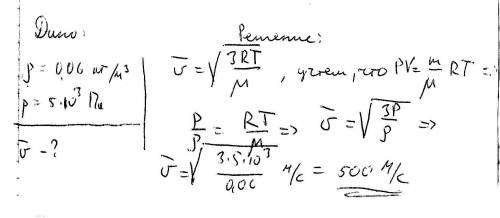 Дано: Решение:
ρ = 0,06 кг/м³
p = 5·10³ Па
v̄ - ?
v̄ = √(3RT/M) , учтем, что PV = m/M RT =>
P/ρ = RT/M => v̄ = √(3P/ρ) =>
v̄ = √(3·5·10³/0,06) м/с = 500 м/с